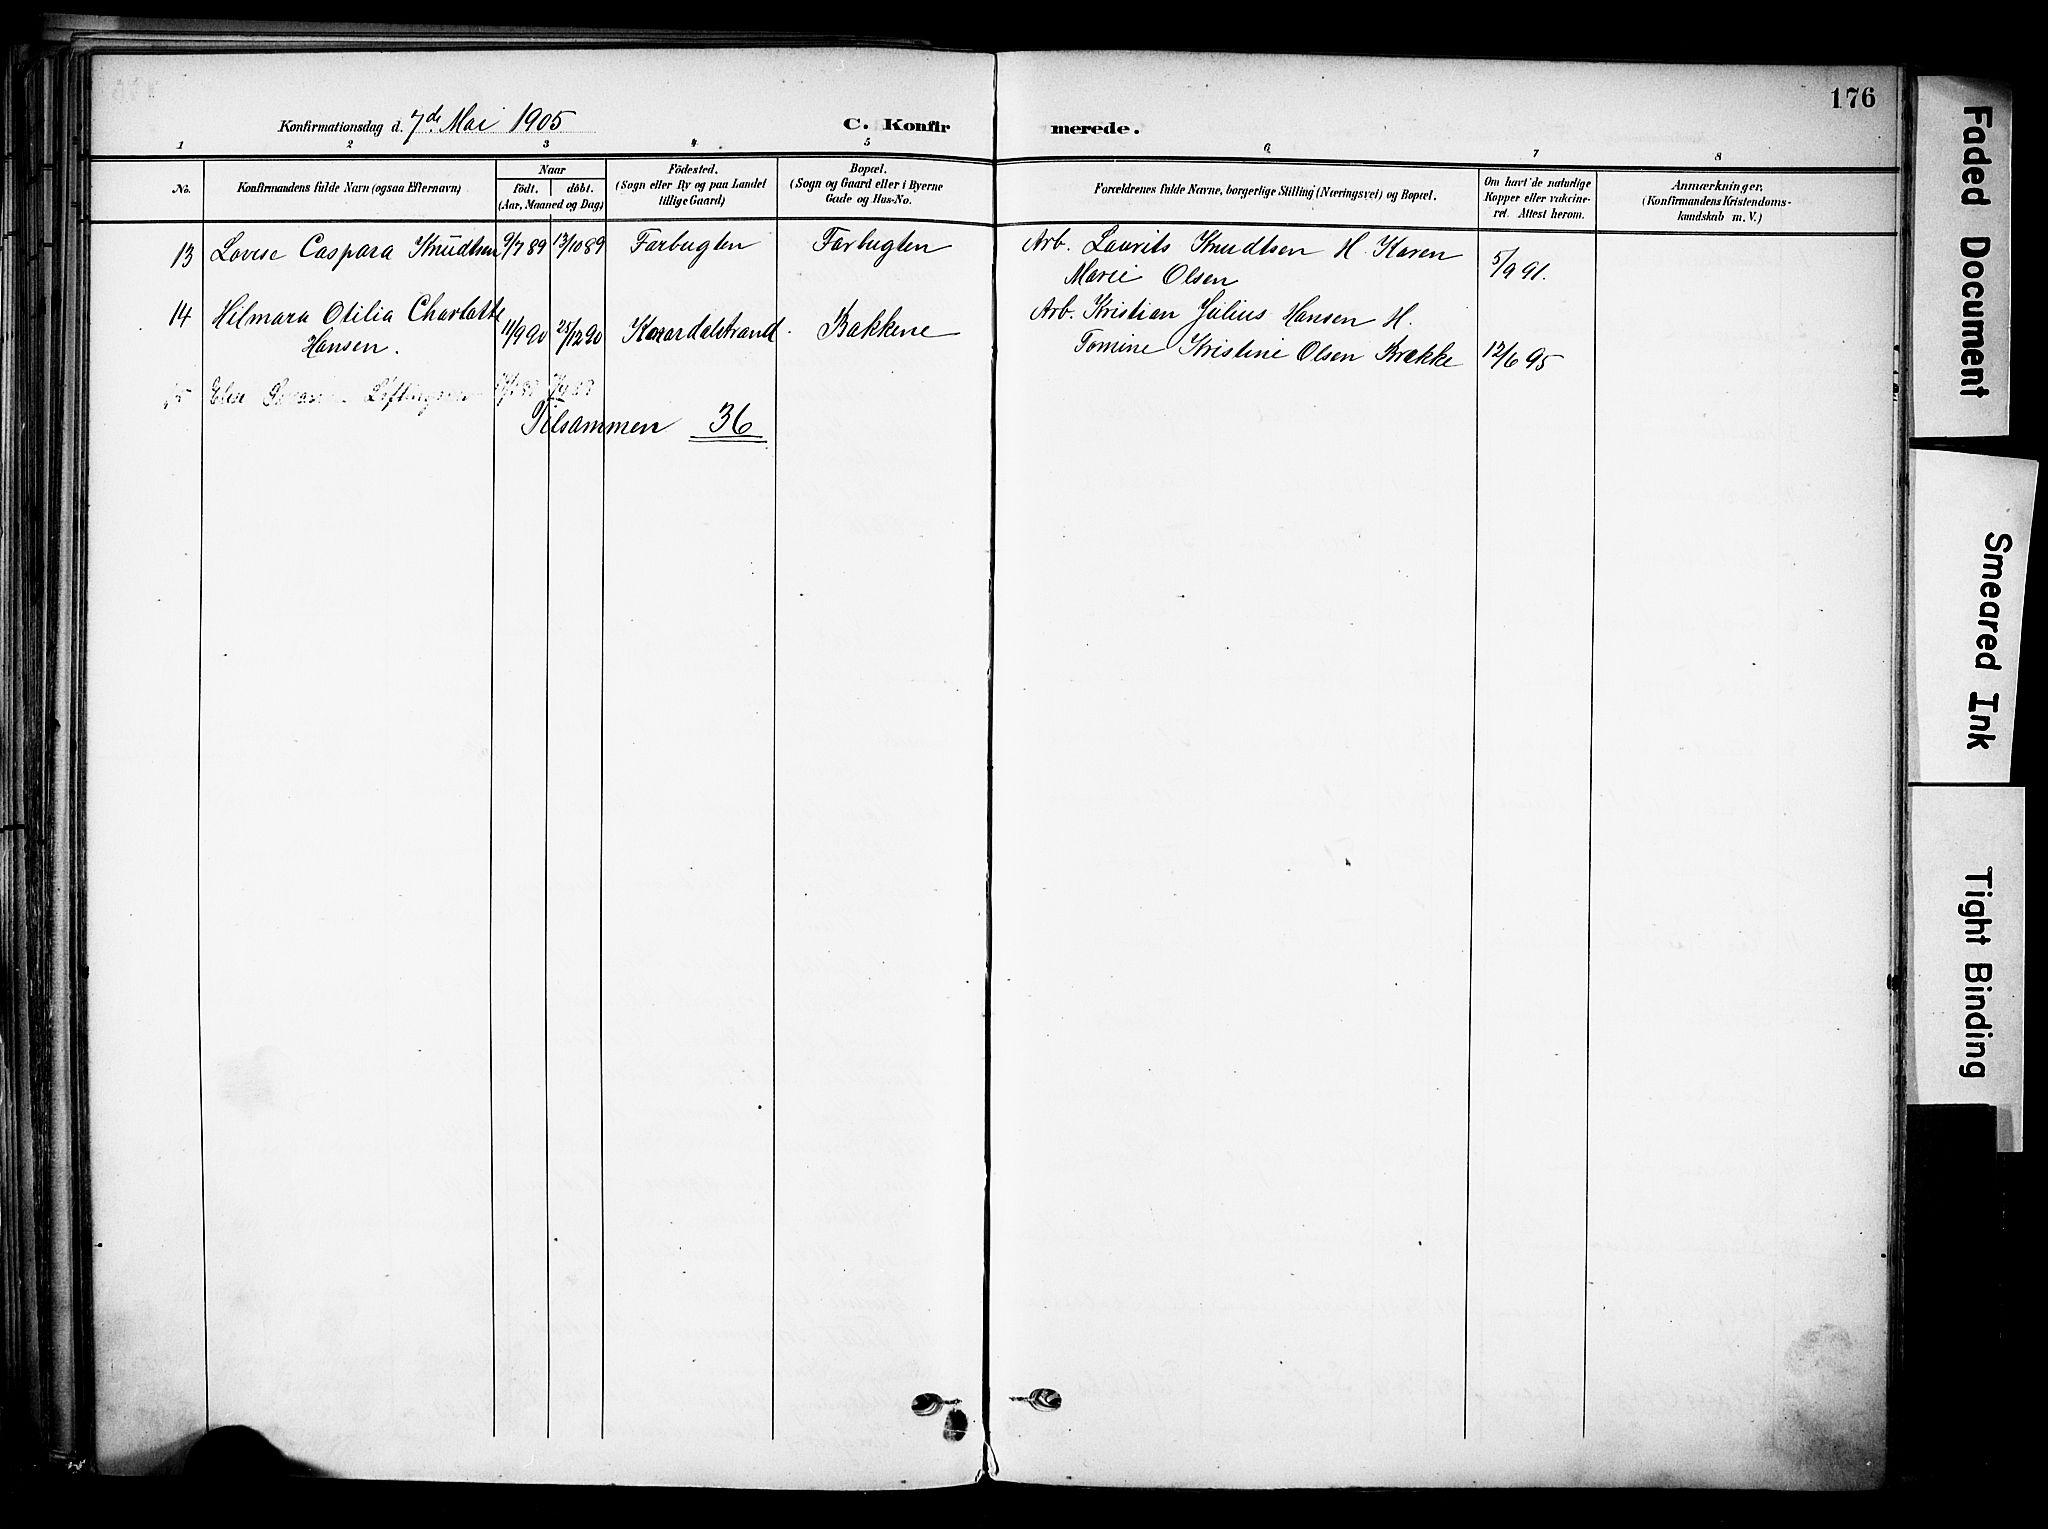 176
Konfirmationsdag d. 7de Mai 1905 C. Konfirmerede.
1 2 3 4 5 6 7 8
No.
Konfirmandens fulde Navn (ogsaa Efternavn)
Naar
födt. döbt.
(Aar, Maaned og Dag)
Födested.
(Sogn eller By og paa Landet
tillige Gaard)
Bopæl.
(Sogn og Gaard eller i Byerne
Gade og Hus-No.
Forældrenes fulde Navne, borgerlige Stilling (Næringsvei) og Bopæl.
Om havt de naturlige
Kopper eller vakcine-
ret. Attest herom.
Anmærkninger.
(Konfirmandens Kristendoms-
kundskab m. V.)
13 Lovise Caspara Knudtsen 9/7 89 13/10 89 Farbugten Farbugten Arb. Laurits Knudtsen H. Karen
Marie Olsen 5/9 91.
14 Hilmara Otilia Charlotte
Hansen. 11/9 90 25/12 90 Bakkene Arb. Kristian Julius Hansen H.
Tomine Kristine Olsen Brække 12/6 95
15 Elise
Tilsammen 36
Faded Document
Smeared Ink
Tight Binding